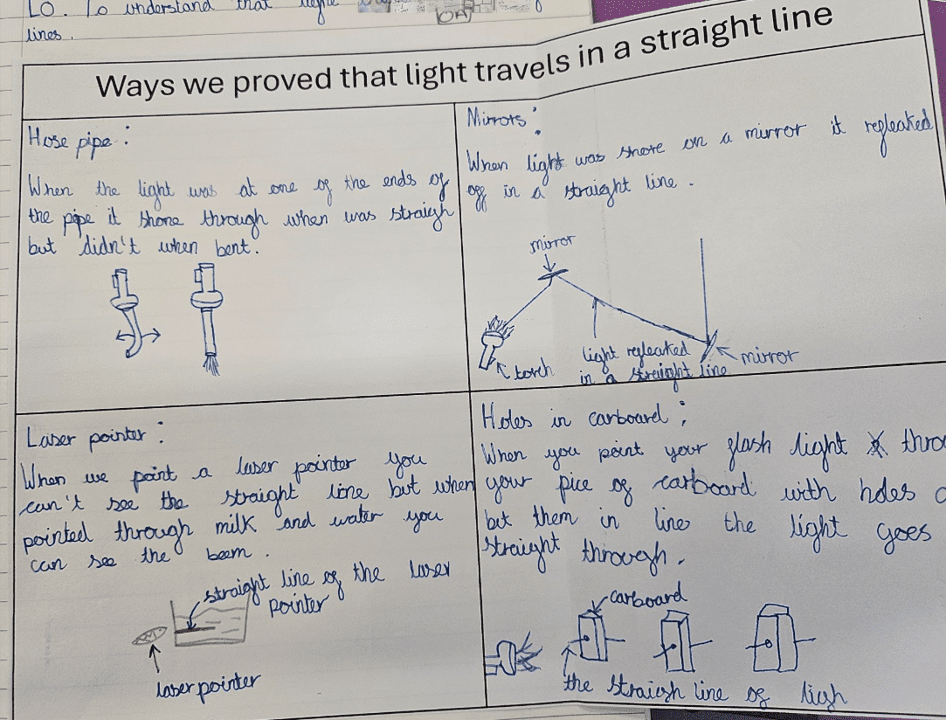 LO. To understand that light
lines.
Ways we proved that light travels in a straight line
Hose pipe:
When the light was at one of the ends of
the pipe it shone through when was straigh
but didn't when bent.
Mirrors:
When light was shore on a mirror it refleaked
off in a straight line.
mirror
torch
light refleaked
in a straight line
mirror
Laser pointer:
When we point a laser pointer you
can't see the straight line but when
pointed through milk and water you
can see the beam.
straight line of the laser
pointer
laser pointer
Holes in carboard;
When you point your flash light throu
your pice of carboard with holes
but them in line the light goes
straight through.
carboard
the straigh line of ligh